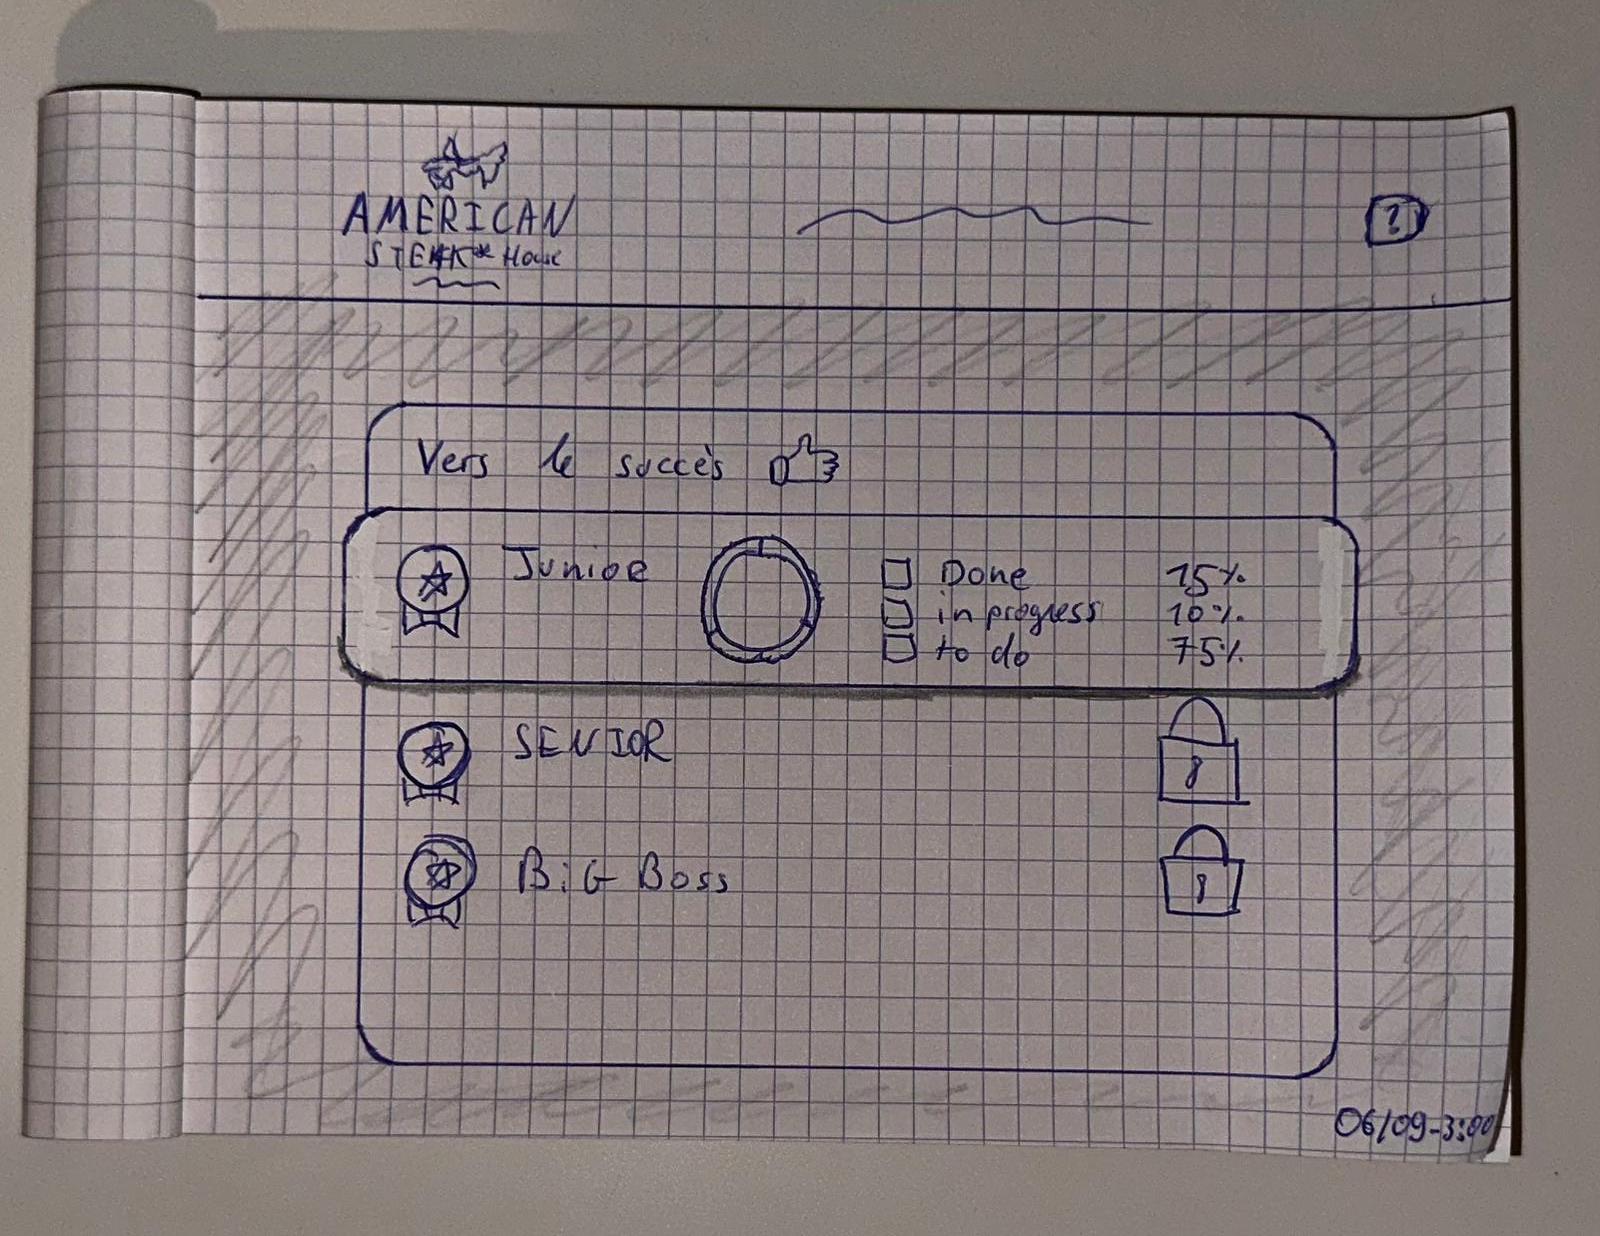 AMERICAN
STEAK House
?
Vers le succès
Junior
Done 15%
in progress 10%
to do 75%
SENIOR
BiG Boss
06/09-3:00